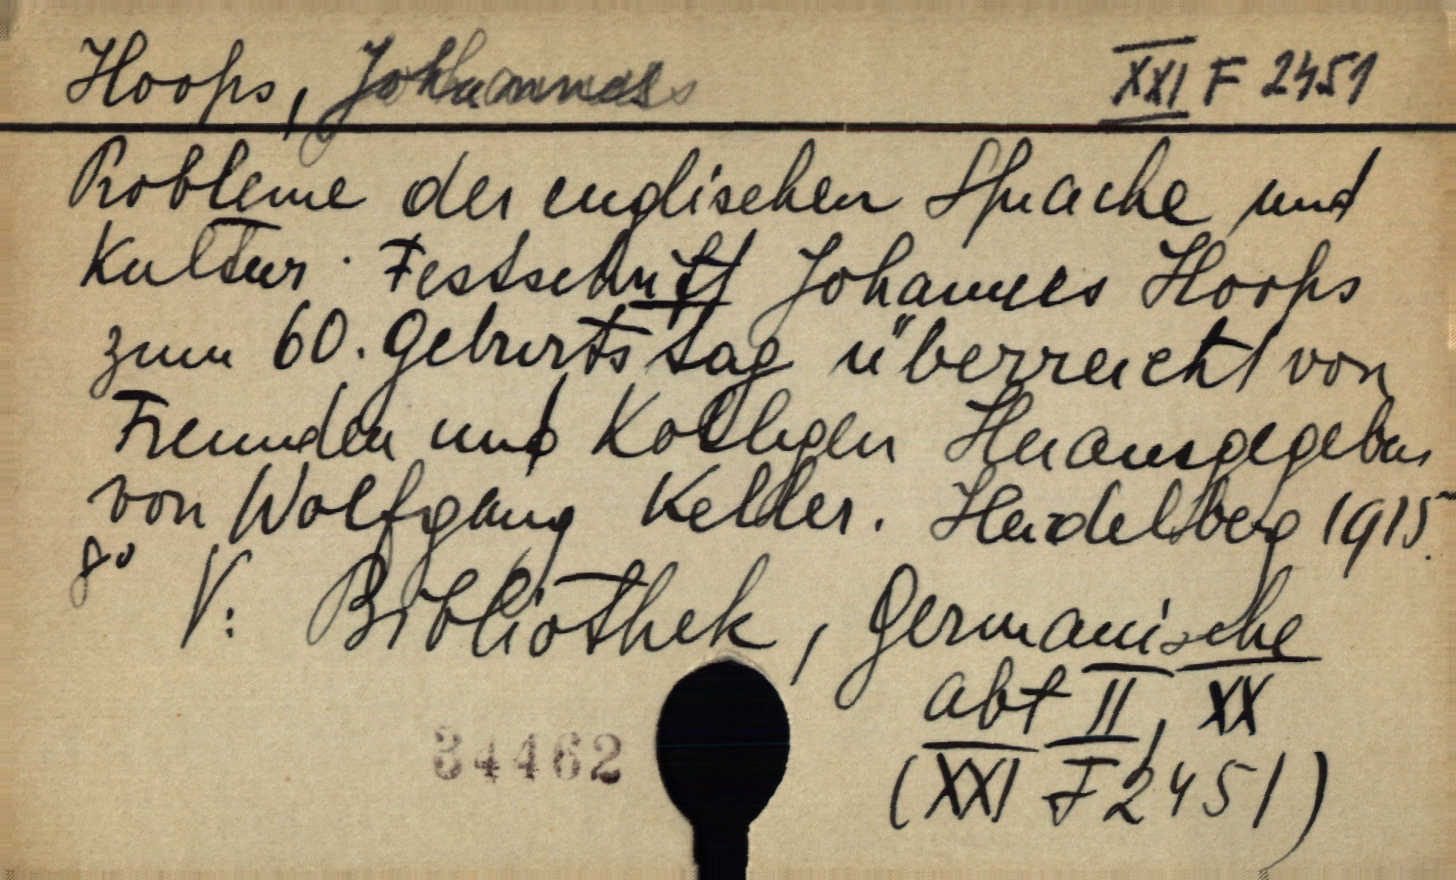 Hoops, Johannes XXI F 2451
Probleme der englischen Sprache und
Kultur. Festschrift Johannes Hoops
zum 60. Geburtstag überreicht von
Freunden und Kollegen Herausgegeben
von Wolfgang Keller. Heidelberg 1915.
8° V: Bibliothek, Germanische
abt II, XX
34462 (XXI F 2451)